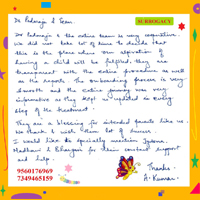 Dr Padmaja & Team.
SURROGACY
Dr Padmaja & the entire team is very cooperative.
We did not take lot of time to decide that
this is the place where our aspiration of
having a child will be fulfilled. They are
transparent with the entire procedure as well
as the reports. The onboarding process is very
smooth and the entire journey was very
informative as they kept us updated in every
step of the treatment.
They are a blessing for intended parents like us.
We thank & wish them lot of success.
I would like to specially mention
Madhavi & Bhargavi for their constant support
and help.
Thanks
A. Kumar.
9560176969
7349465159